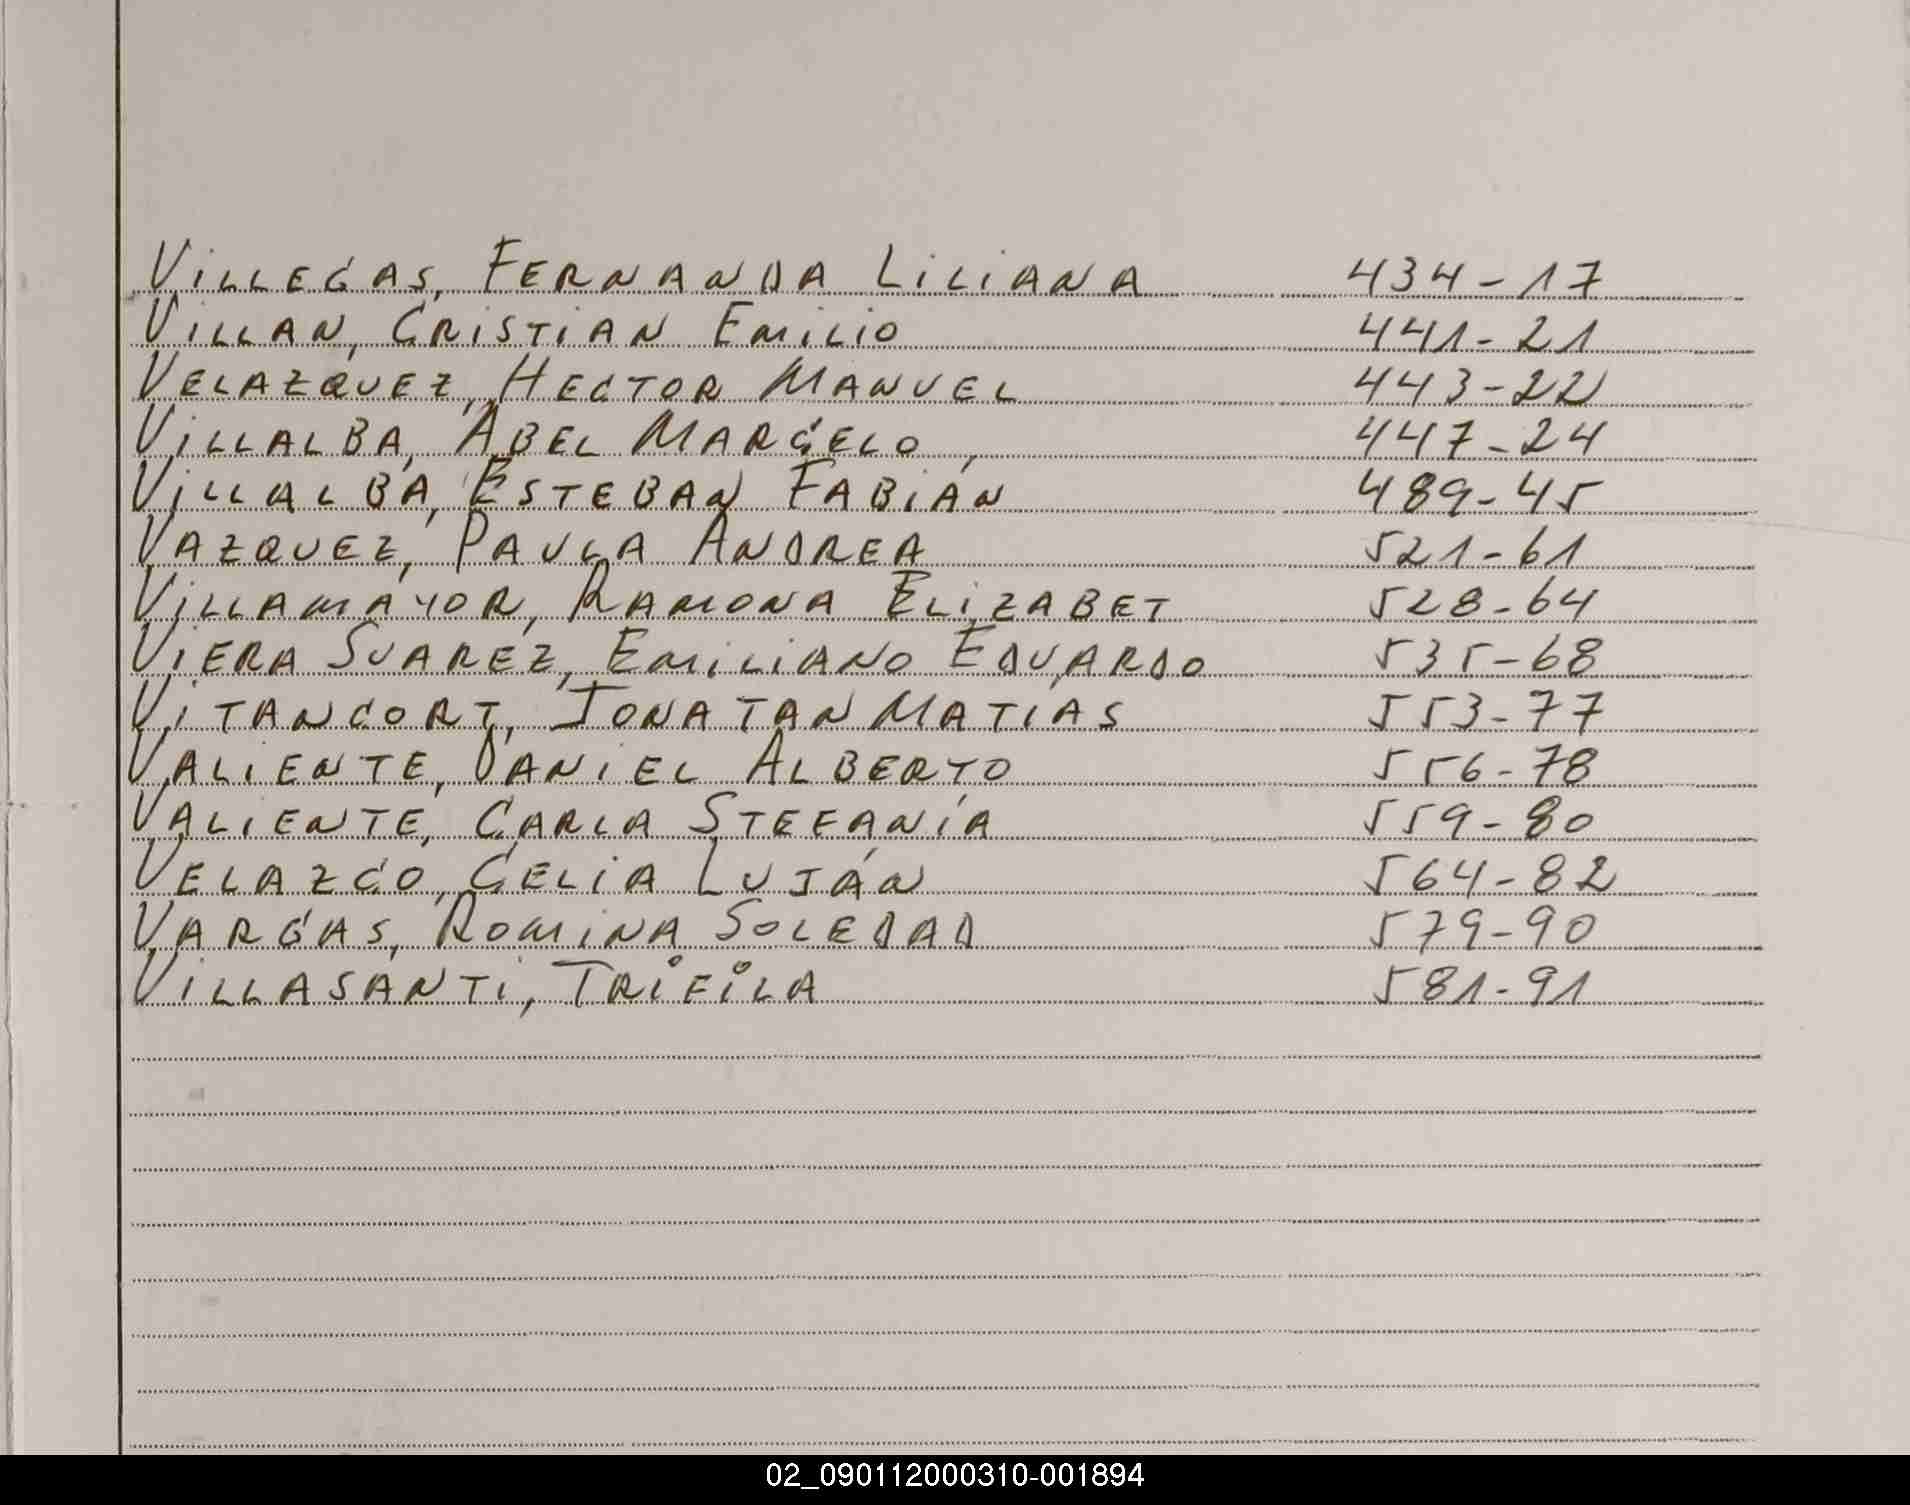 VILLEGAS, FERNANDA LILIANA 434-17
VILLAN, CRISTIAN EMILIO 441-21
VELAZQUEZ, HECTOR MANUEL 443-22
VILLALBA, ABEL MARCELO 447-24
VILLALBA, ESTEBAN FABIÁN 489-45
VAZQUEZ, PAULA ANDREA 521-61
VILLAMAYOR, RAMONA ELIZABET 528-64
VIERA SUAREZ, EMILIANO EDUARDO 535-68
VITANCORT, JONATAN MATÍAS 553-77
VALIENTE, DANIEL ALBERTO 556-78
VALIENTE, CARLA STEFANÍA 559-80
VELAZCO, CELIA LUJÁN 564-82
VARGAS, ROMINA SOLEDAD 579-90
VILLASANTI, TRIFILA 581-91
02_090112000310-001894